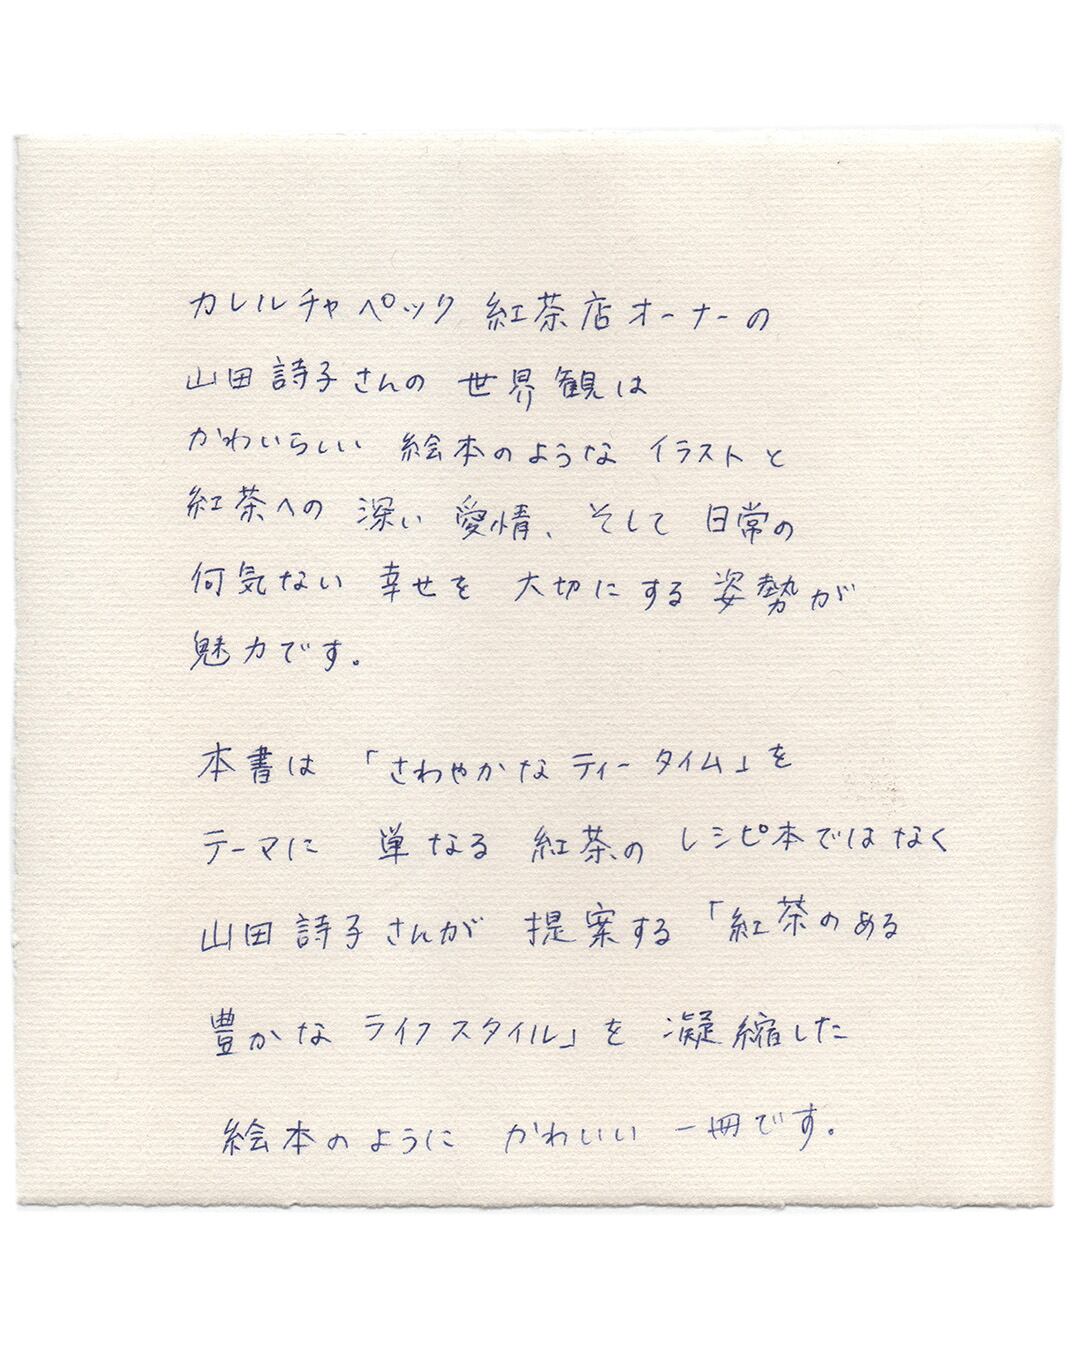 カレルチャペック 紅茶店オーナーの
山田詩子さんの 世界観は
かわいらしい 絵本のような イラストと
紅茶への 深い 愛情、そして 日常の
何気ない 幸せを 大切にする 姿勢が
魅力です。
本書は 「さわやかな ティータイム」を
テーマに 単なる 紅茶の レシピ本ではなく
山田詩子さんが 提案する 「紅茶のある
豊かな ライフスタイル」を 凝縮した
絵本のように かわいい 一冊です。